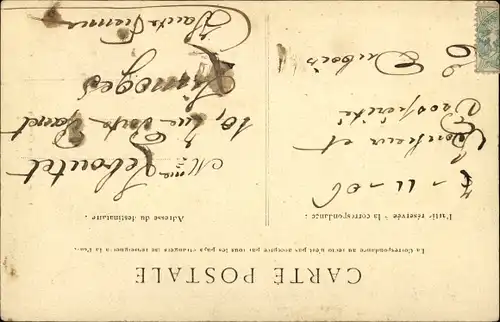 CARTE POSTALE
La Correspondance au recto n'est pas acceptée par tous les pays étrangers (se renseigner à la Poste)
Partie réservée à la correspondance
Adresse du destinataire
11-06
Bonheur et
Prospérité
E Dubois
Mme Leboutet
10, rue
Limoges
Haute Vienne